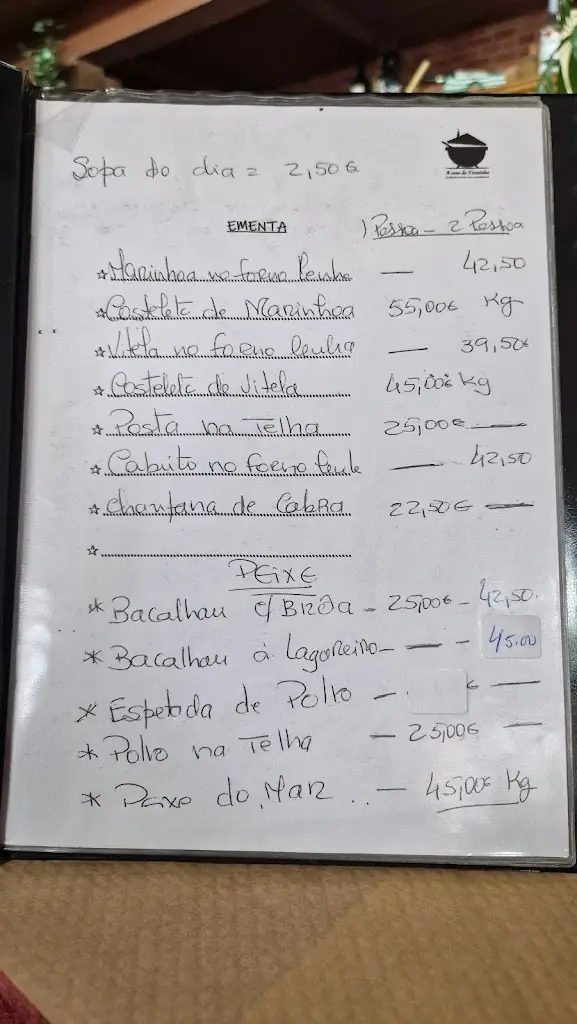 Sopa do dia = 2,50€
EMENTA 1 Pessoa - 2 Pessoa
☆ Marinhoa no forno lenha — 42,50
☆ Costelete de Marinhoa 55,00€ Kg
☆ Vitela no forno lenha — 39,50€
☆ Costelete de Vitela 45,00€ Kg
☆ Posta na Telha 25,00€ —
☆ Cabrito no forno — 42,50
☆ Chanfana de Cabra 22,50€ —
☆
PEIXE
* Bacalhau c/ Brôa - 25,00€ - 42,50.
* Bacalhau á Lagareiro - — - 45.00
* Espetada de Polvo - € —
* Polvo na Telha - 25,00€ —
* Peixe do Mar .. — 45,00€ Kg